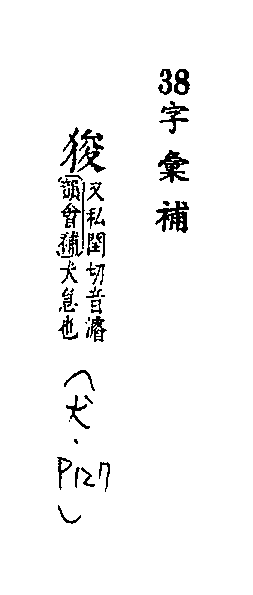 38字彙補
狻
又私閏切音濬
韻會補犬怠也
(犬.P127)